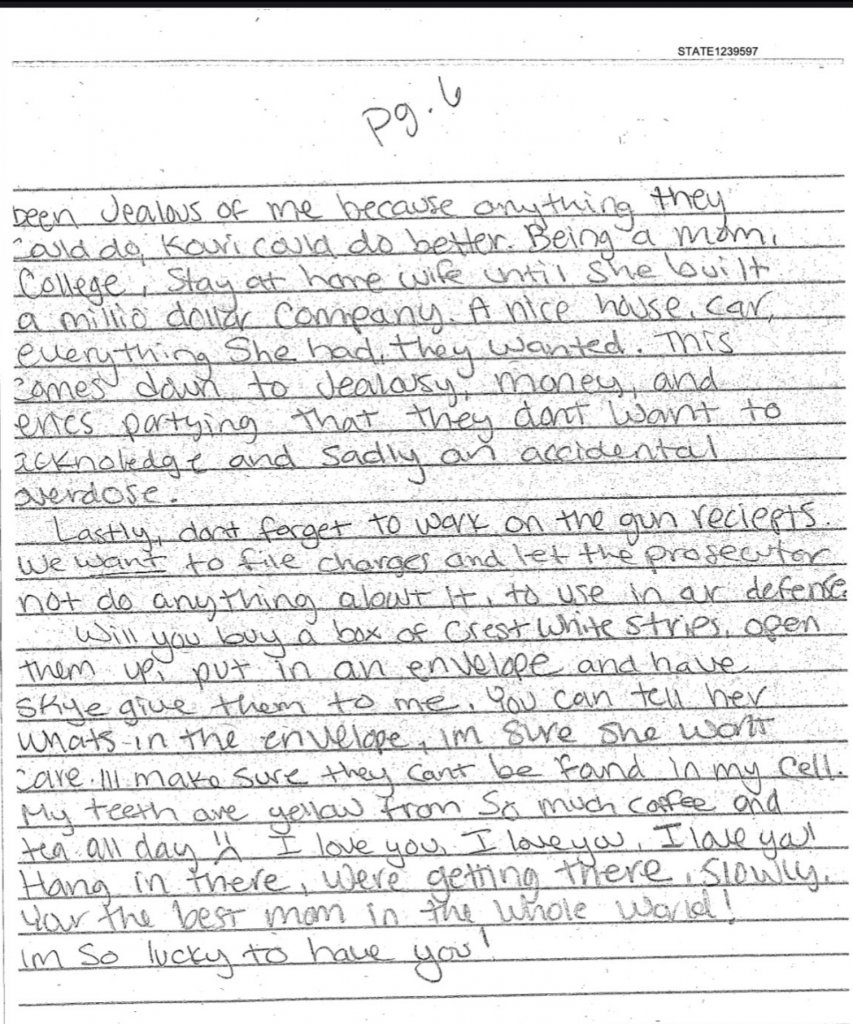 STATE1239597
pg. 6
been Jealous of me because anything they
could do, Kouri could do better. Being a mom,
College, Stay at home wife until she built
a millio dollar Company. A nice house, car,
everything She had, they wanted. This
comes down to Jealousy, money, and
erics partying that they dont want to
acknoledge and sadly an accidental
overdose.
Lastly, dont forget to work on the gun reciepts.
We want to file charges and let the prosecutor
not do anything about it, to use in our defense.
Will you buy a box of Crest White Strips, open
them up, put in an envelope and have
Skye give them to me. You can tell her
whats in the envelope, im sure she wont
care. Ill make sure they cant be found in my cell.
My teeth are yellow from so much coffee and
tea all day I love you, I love you, I love you!
Hang in there, were getting there, slowly.
Your the best mom in the whole world!
im so lucky to have you!